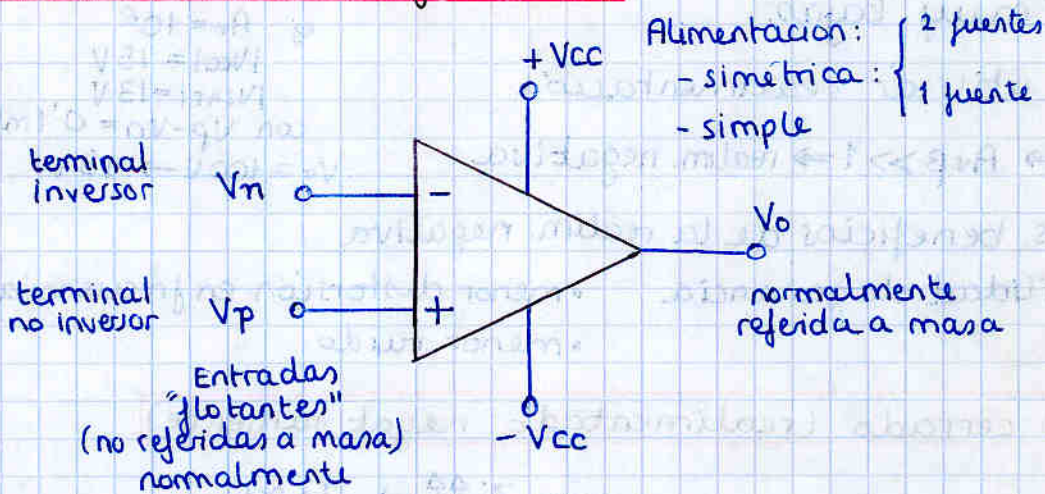 Alimentacion: { 2 fuentes
- simétrica: { 1 fuente
- simple
+ Vcc
teminal
inversor
Vn
-
terminal
no inversor
Vp
+
Vo
normalmente
referida a masa
Entradas
"flotantes"
(no referidas a masa)
normalmente
- Vcc